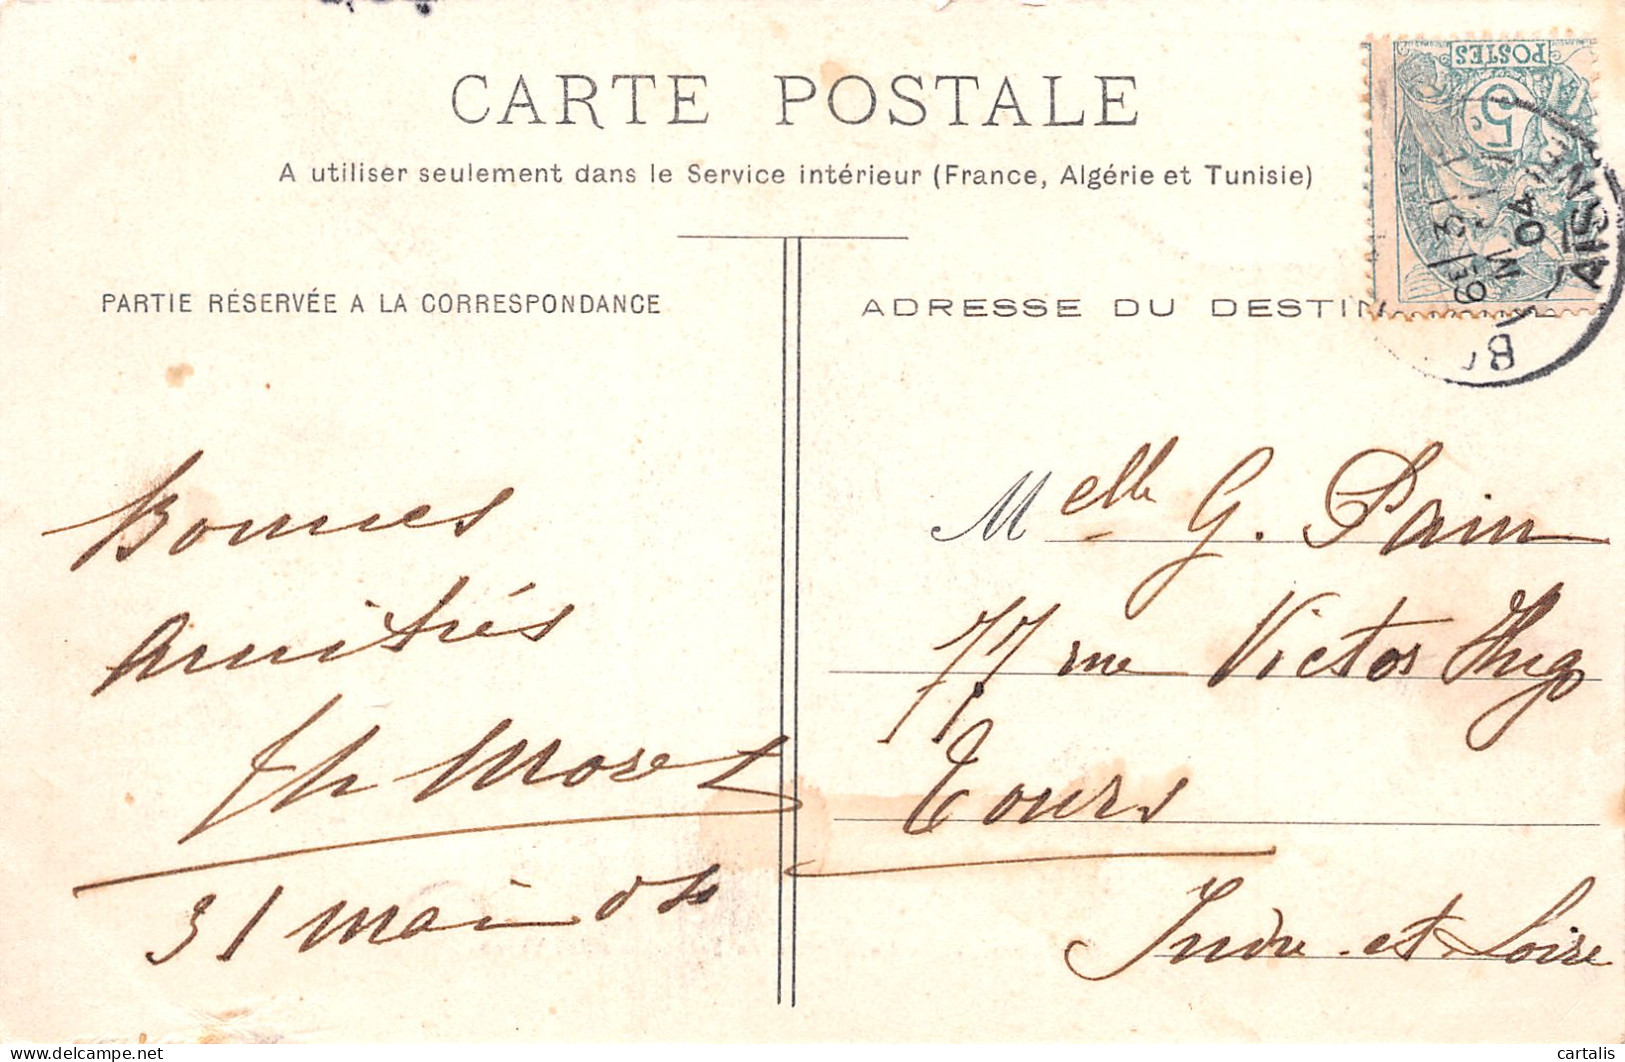 CARTE POSTALE
A utiliser seulement dans le Service intérieur (France, Algérie et Tunisie)
PARTIE RÉSERVÉE A LA CORRESPONDANCE
Bonnes
Amitiés
Moret
31 mai 04
ADRESSE DU DESTIN
POSTES
5c
AISNE
04
Melle G. Pain
77 rue Victor Hugo
Tours
Indre-et-Loire
delcampe.net
cartalis